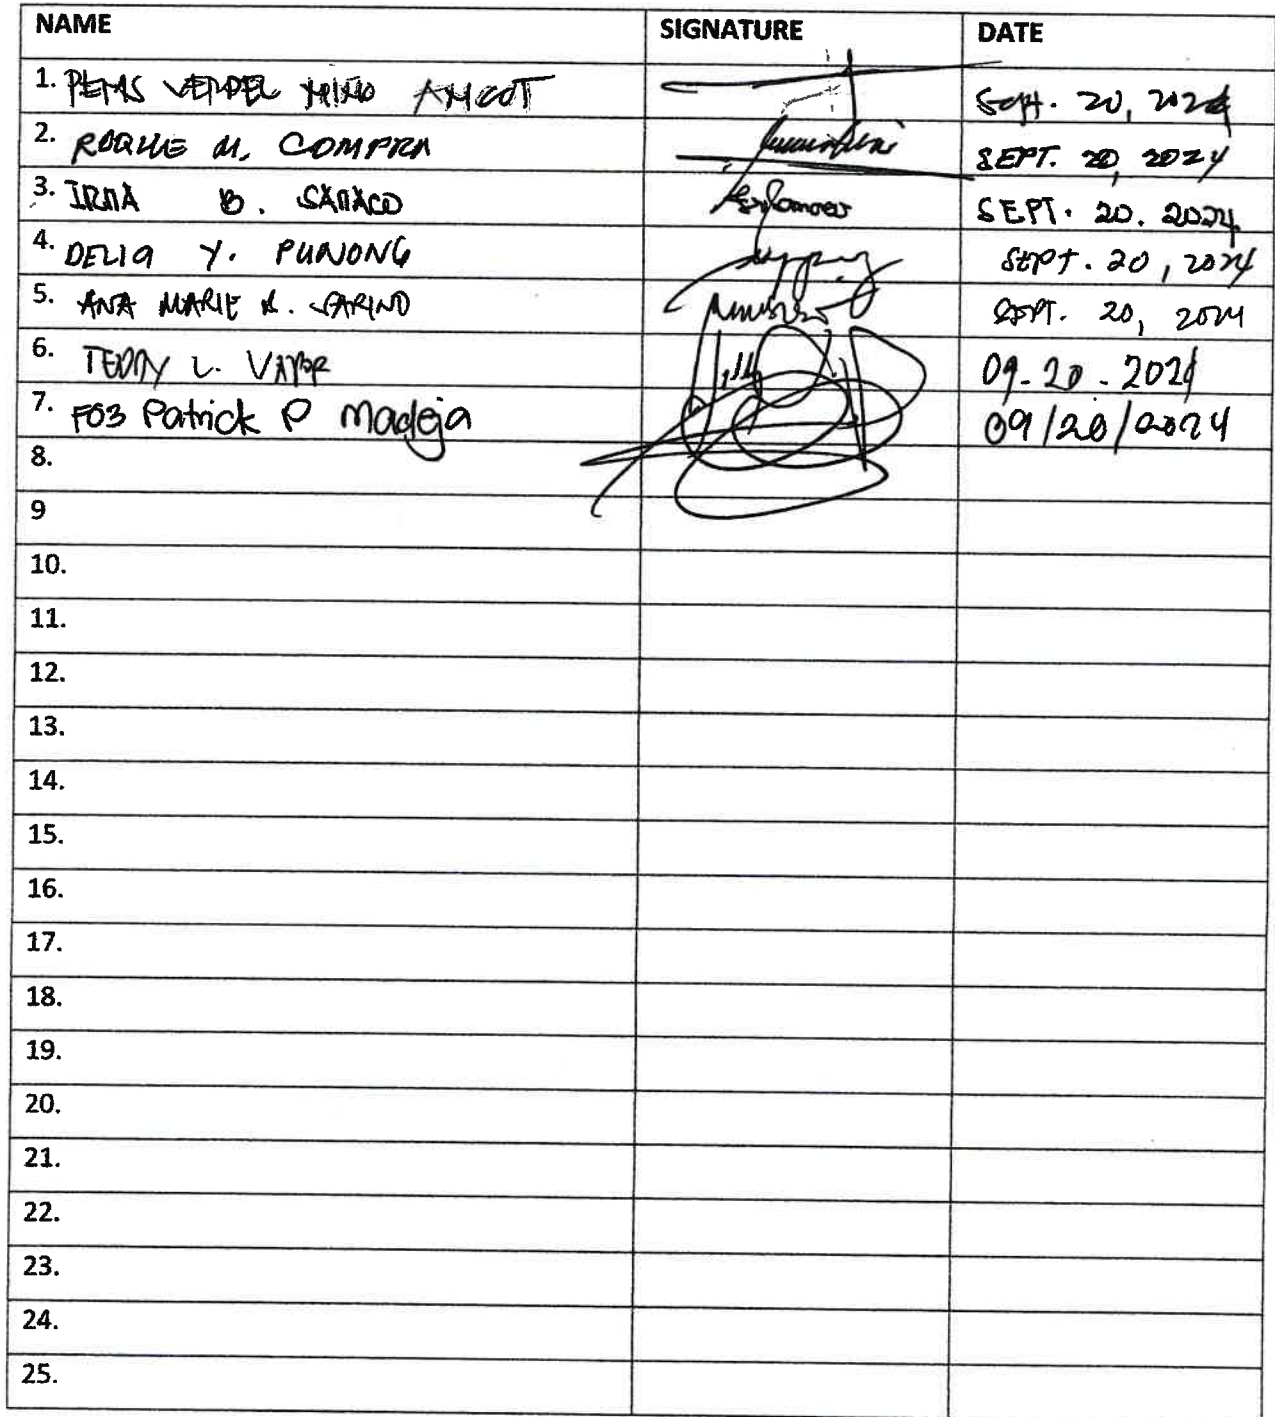 NAME SIGNATURE DATE
1. AMCOT Sept. 20, 2024
2. ROQUE M. COMPRA SEPT. 20, 2024
3. IRMA B. SEPT. 20. 2024
4. DELIA Y. PUNONG SEPT. 20, 2024
5. ANA MARIE SARINO SEPT. 20, 2024
6. TEDDY L. 09-20-2024
7. FO3 Patrick P Madeja 09/20/2024
8.
9
10.
11.
12.
13.
14.
15.
16.
17.
18.
19.
20.
21.
22.
23.
24.
25.